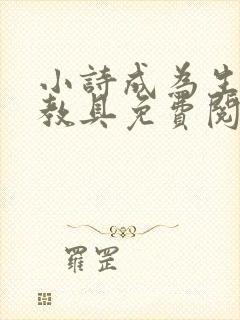 小詩成為生
教具免費閱
羅罡